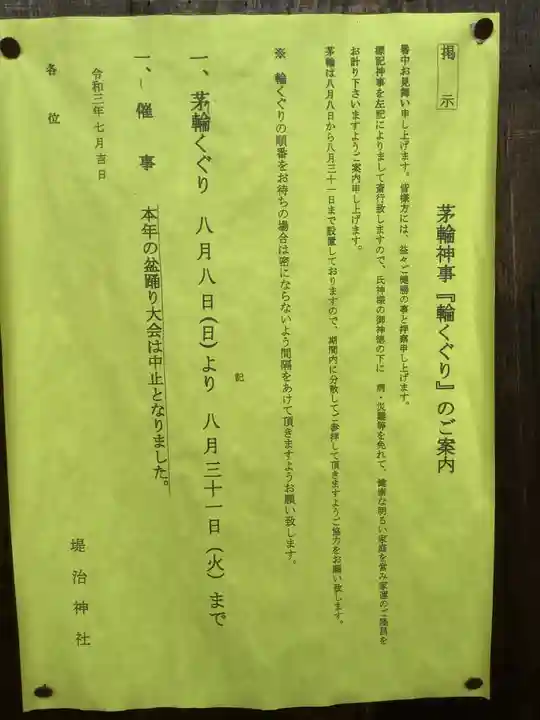 掲示
茅輪神事『輪くぐり』のご案内
暑中お見舞い申し上げます。皆様方には、益々ご健勝の事と拝察申し上げます。
標記神事を左記によりまして斎行致しますので、氏神様の御神徳の下に 病・災難等を免れて、健康な明るい家庭を営み家運のご隆昌を
お計り下さいますようご案内申し上げます。
茅輪は八月八日から八月三十一日まで設置しておりますので、期間内に分散してご参拝して頂きますようご協力をお願い致します。
※ 輪くぐりの順番をお待ちの場合は密にならないよう間隔をあけて頂きますようお願い致します。
記
一、茅輪くぐり 八月八日(日)より 八月三十一日(火)まで
一、催事 本年の盆踊り大会は中止となりました。
令和三年七月吉日
堤治神社
各位